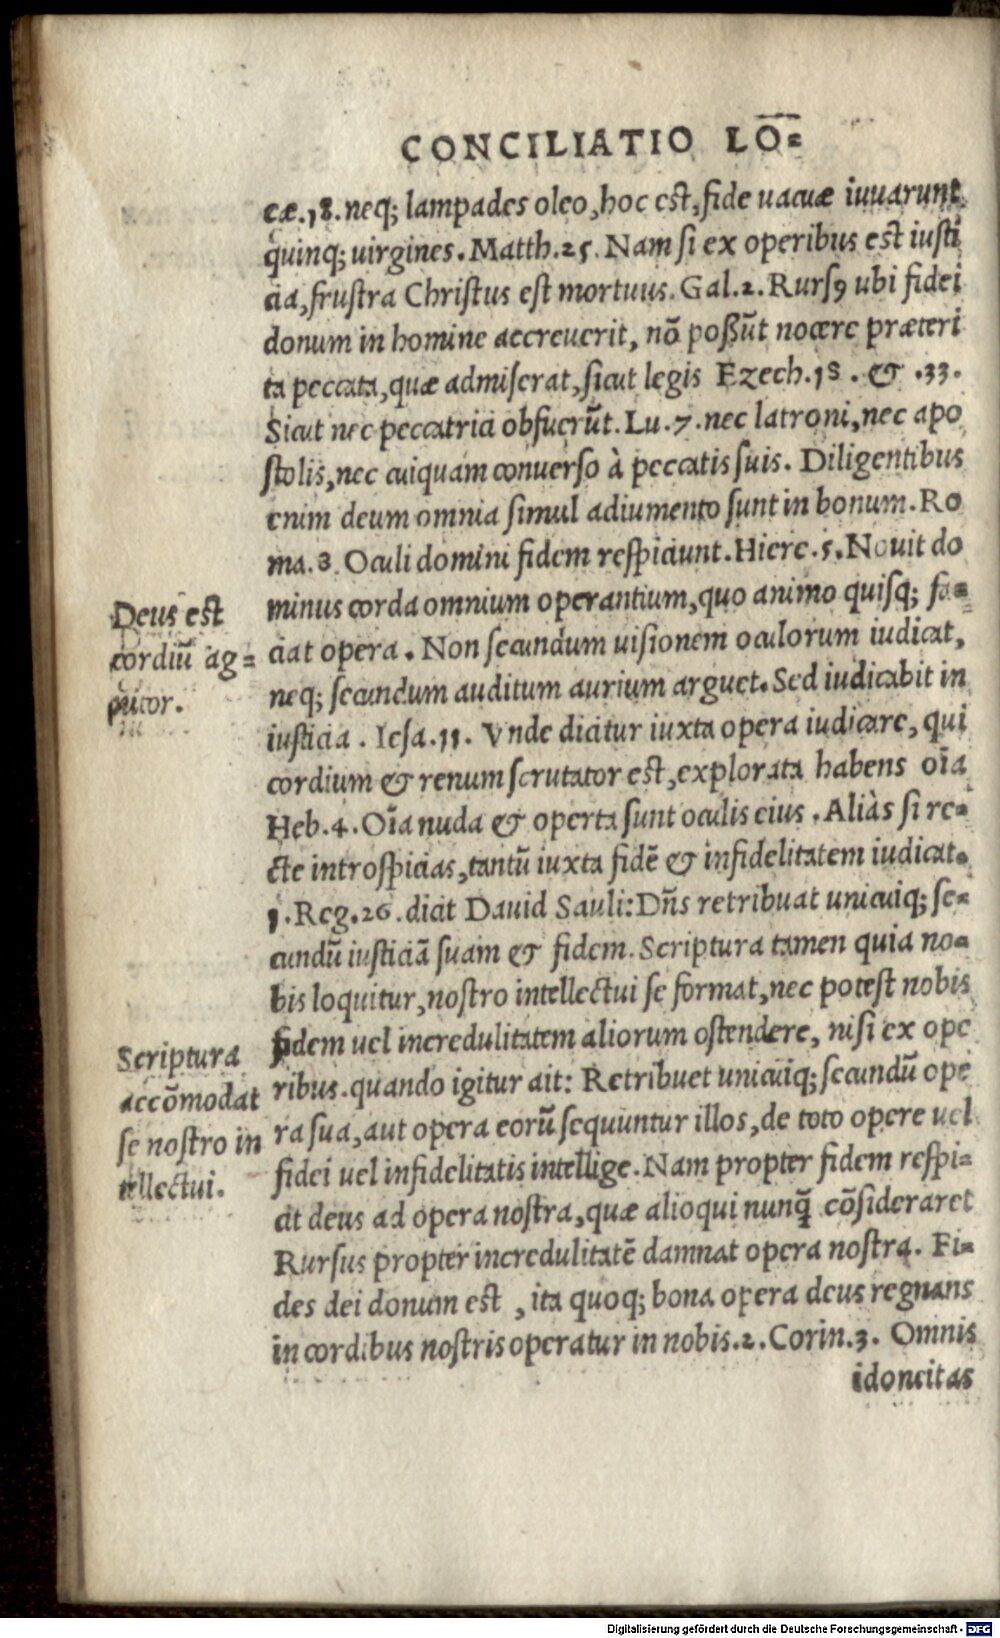 CONCILIATIO LO̅=
cæ.18.neq; lampades oleo,hoc est,fide uacuæ iuuarunt
quinq; uirgines.Matth.25. Nam si ex operibus est iusti
cia,frustra Christus est mortuus.Gal.2. Rursꝰ ubi fidei
donum in homine accreuerit, nō possūt nocere præteri
ta peccata,quæ admiserat,sicut legis Ezech.18. & .33.
Sicut nec peccatrici obfuerūt.Lu.7.nec latroni,nec apo
stolis,nec cuiquam conuerso à peccatis suis. Diligentibus
enim deum omnia simul adiumento sunt in bonum.Ro
ma.8. Oculi domini fidem respiciunt.Hiere.5.Nouit do
minus corda omnium operantium,quo animo quisq; fa=
Deus est
cordiū ag=
ciat opera. Non secundum uisionem oculorum iudicat,
neq; secundum auditum aurium arguet.Sed iudicabit in
iusticia. Iesa.11. Vnde dicitur iuxta opera iudicare, qui
cordium & renum scrutator est,explorata habens oīa
Heb.4.Oīa nuda & operta sunt oculis eius. Aliàs si re=
cte introspicias,tantū iuxta fidē & infidelitatem iudicat.
1.Reg.26.dicit Dauid Sauli:Dn̄s retribuat unicuiq; se=
cundū iusticiā suam & fidem. Scriptura tamen quia no=
bis loquitur,nostro intellectui se format,nec potest nobis
fidem uel incredulitatem aliorum ostendere, nisi ex ope
Scriptura
accōmodat
se nostro in
tellectui.
ribus.quando igitur ait: Retribuet unicuiq; secundū ope
ra sua,aut opera eorū sequuntur illos,de toto opere uel
fidei uel infidelitatis intellige.Nam propter fidem respi=
cit deus ad opera nostra,quæ alioqui nunq̄ cōsideraret
Rursus propter incredulitatē damnat opera nostra. Fi=
des dei donum est , ita quoq; bona opera deus regnans
in cordibus nostris operatur in nobis.2.Corin.3. Omnis
idoneitas
Digitalisierung gefördert durch die Deutsche Forschungsgemeinschaft - DFG